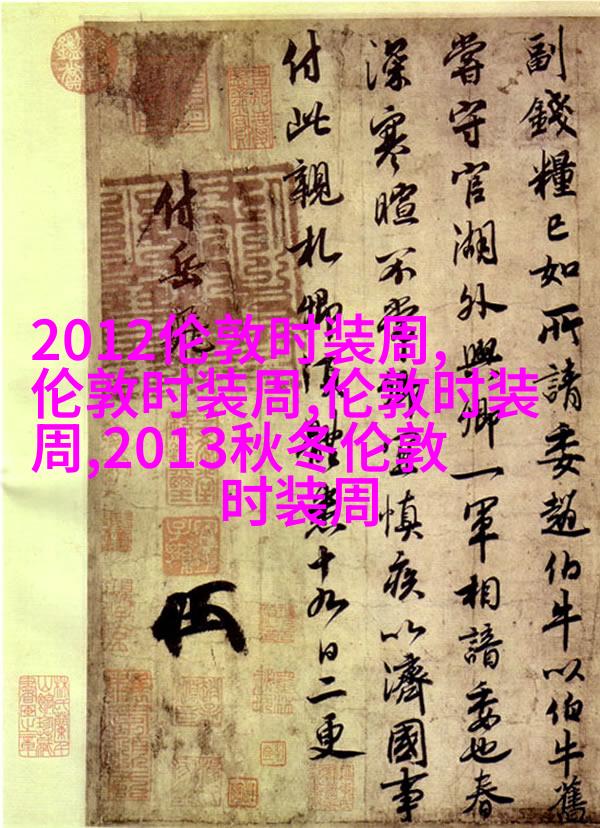 2012伦敦时装周,
伦敦时装周,伦敦时装
周,2013秋冬伦敦
时装周
副錢糧已如所請委趙伯牛以伯牛舊
嘗守官湖外與卿一軍相諳委也春
深寒暄不常 宜慎疾以濟國事
付此親札卿須體悉十九日二更
付岳飛